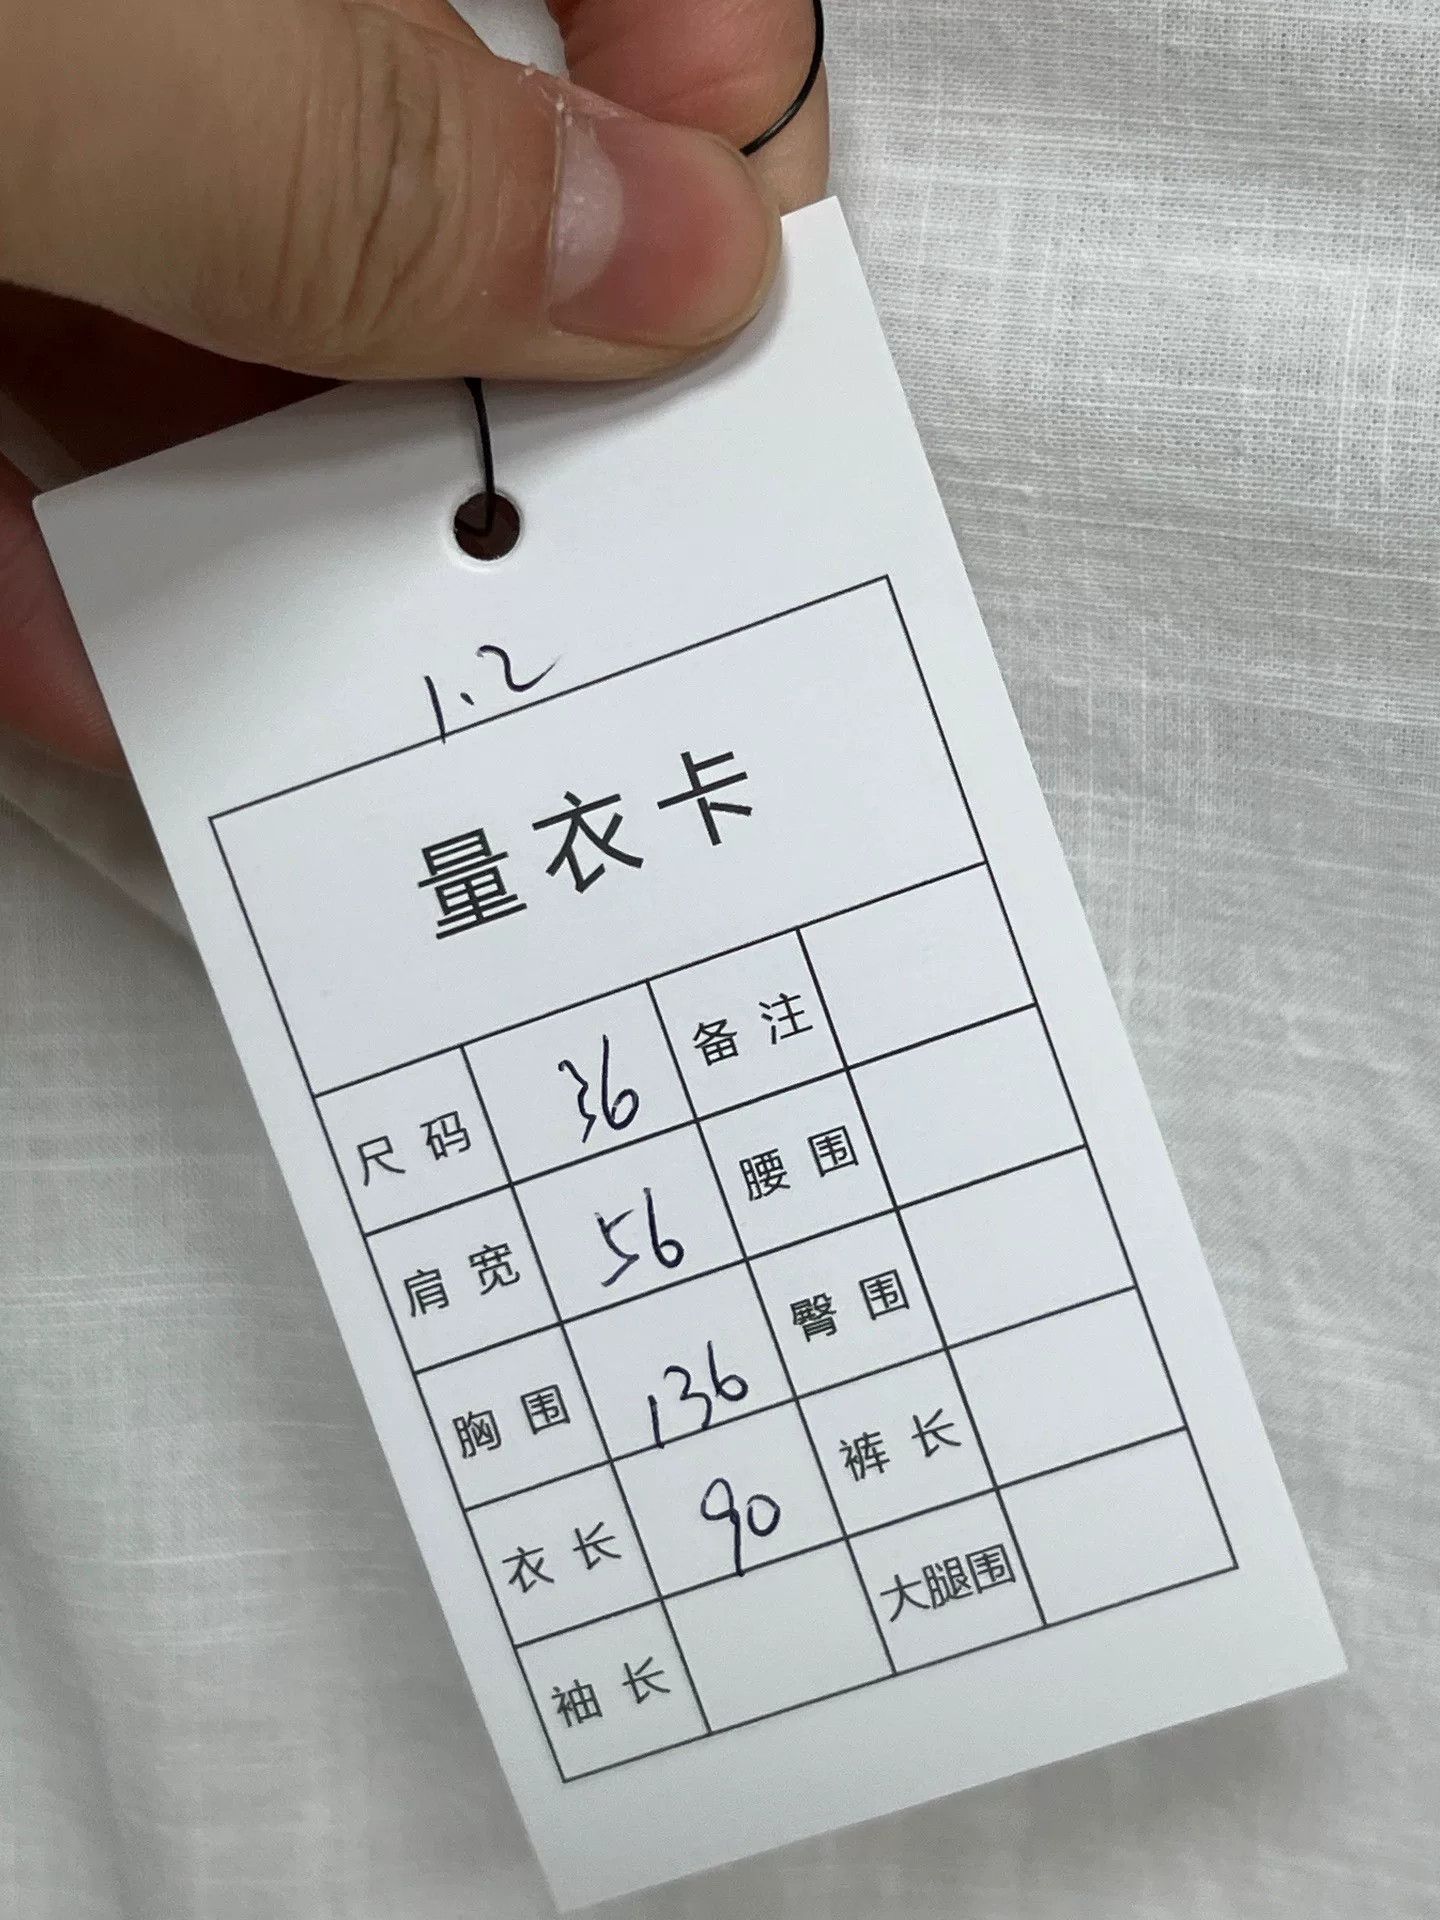 1.2
量衣卡
尺码 36 备注
肩宽 56 腰围
胸围 136 臀围
衣长 90 裤长
袖长 大腿围